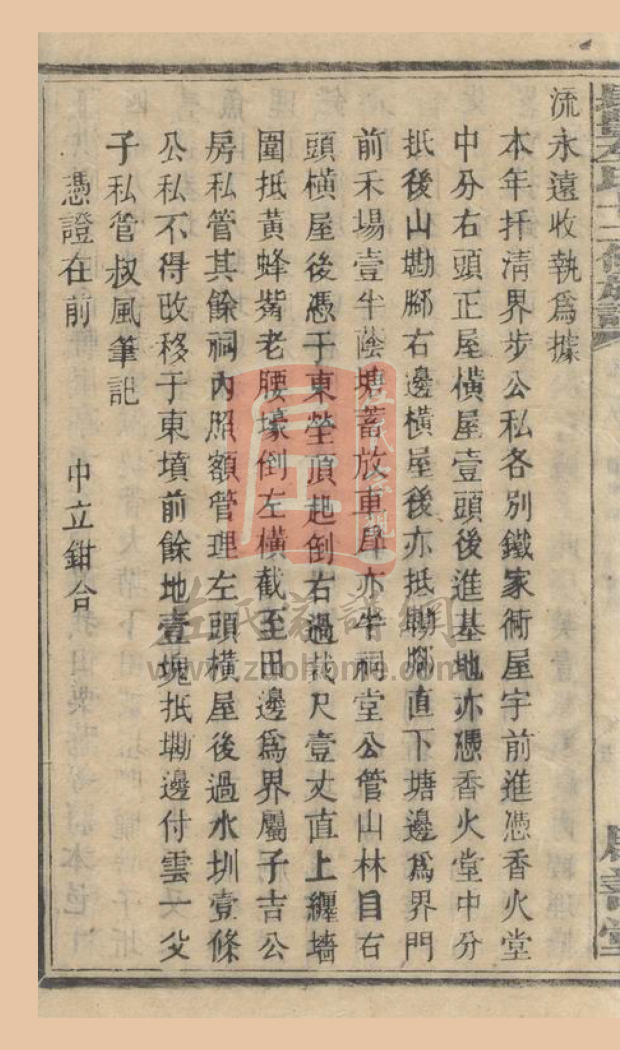 流永遠收執爲據
本年扦清界步公私各別鐵家衕屋宇前進憑香火堂
中分右頭正屋橫屋壹頭後進基地亦憑香火堂中分
抵後山墈脚右邊橫屋後亦抵墈脚直下塘邊爲界門
前禾場壹半蔭塘蓄放車戽亦半祠堂公管山林目右
頭橫屋後憑于東塋頂起倒右過裁尺壹丈直上纏墻
圍抵黃蜂觜老腰壕倒左橫截至田邊爲界屬子吉公
房私管其餘祠內照額管理左頭橫屋後過水圳壹條
公私不得改移于東墳前餘地壹塊抵墈邊付雲一父
子私管叔風筆記
憑證在前
中立鉗合
左氏族譜網
www.zuohome.com